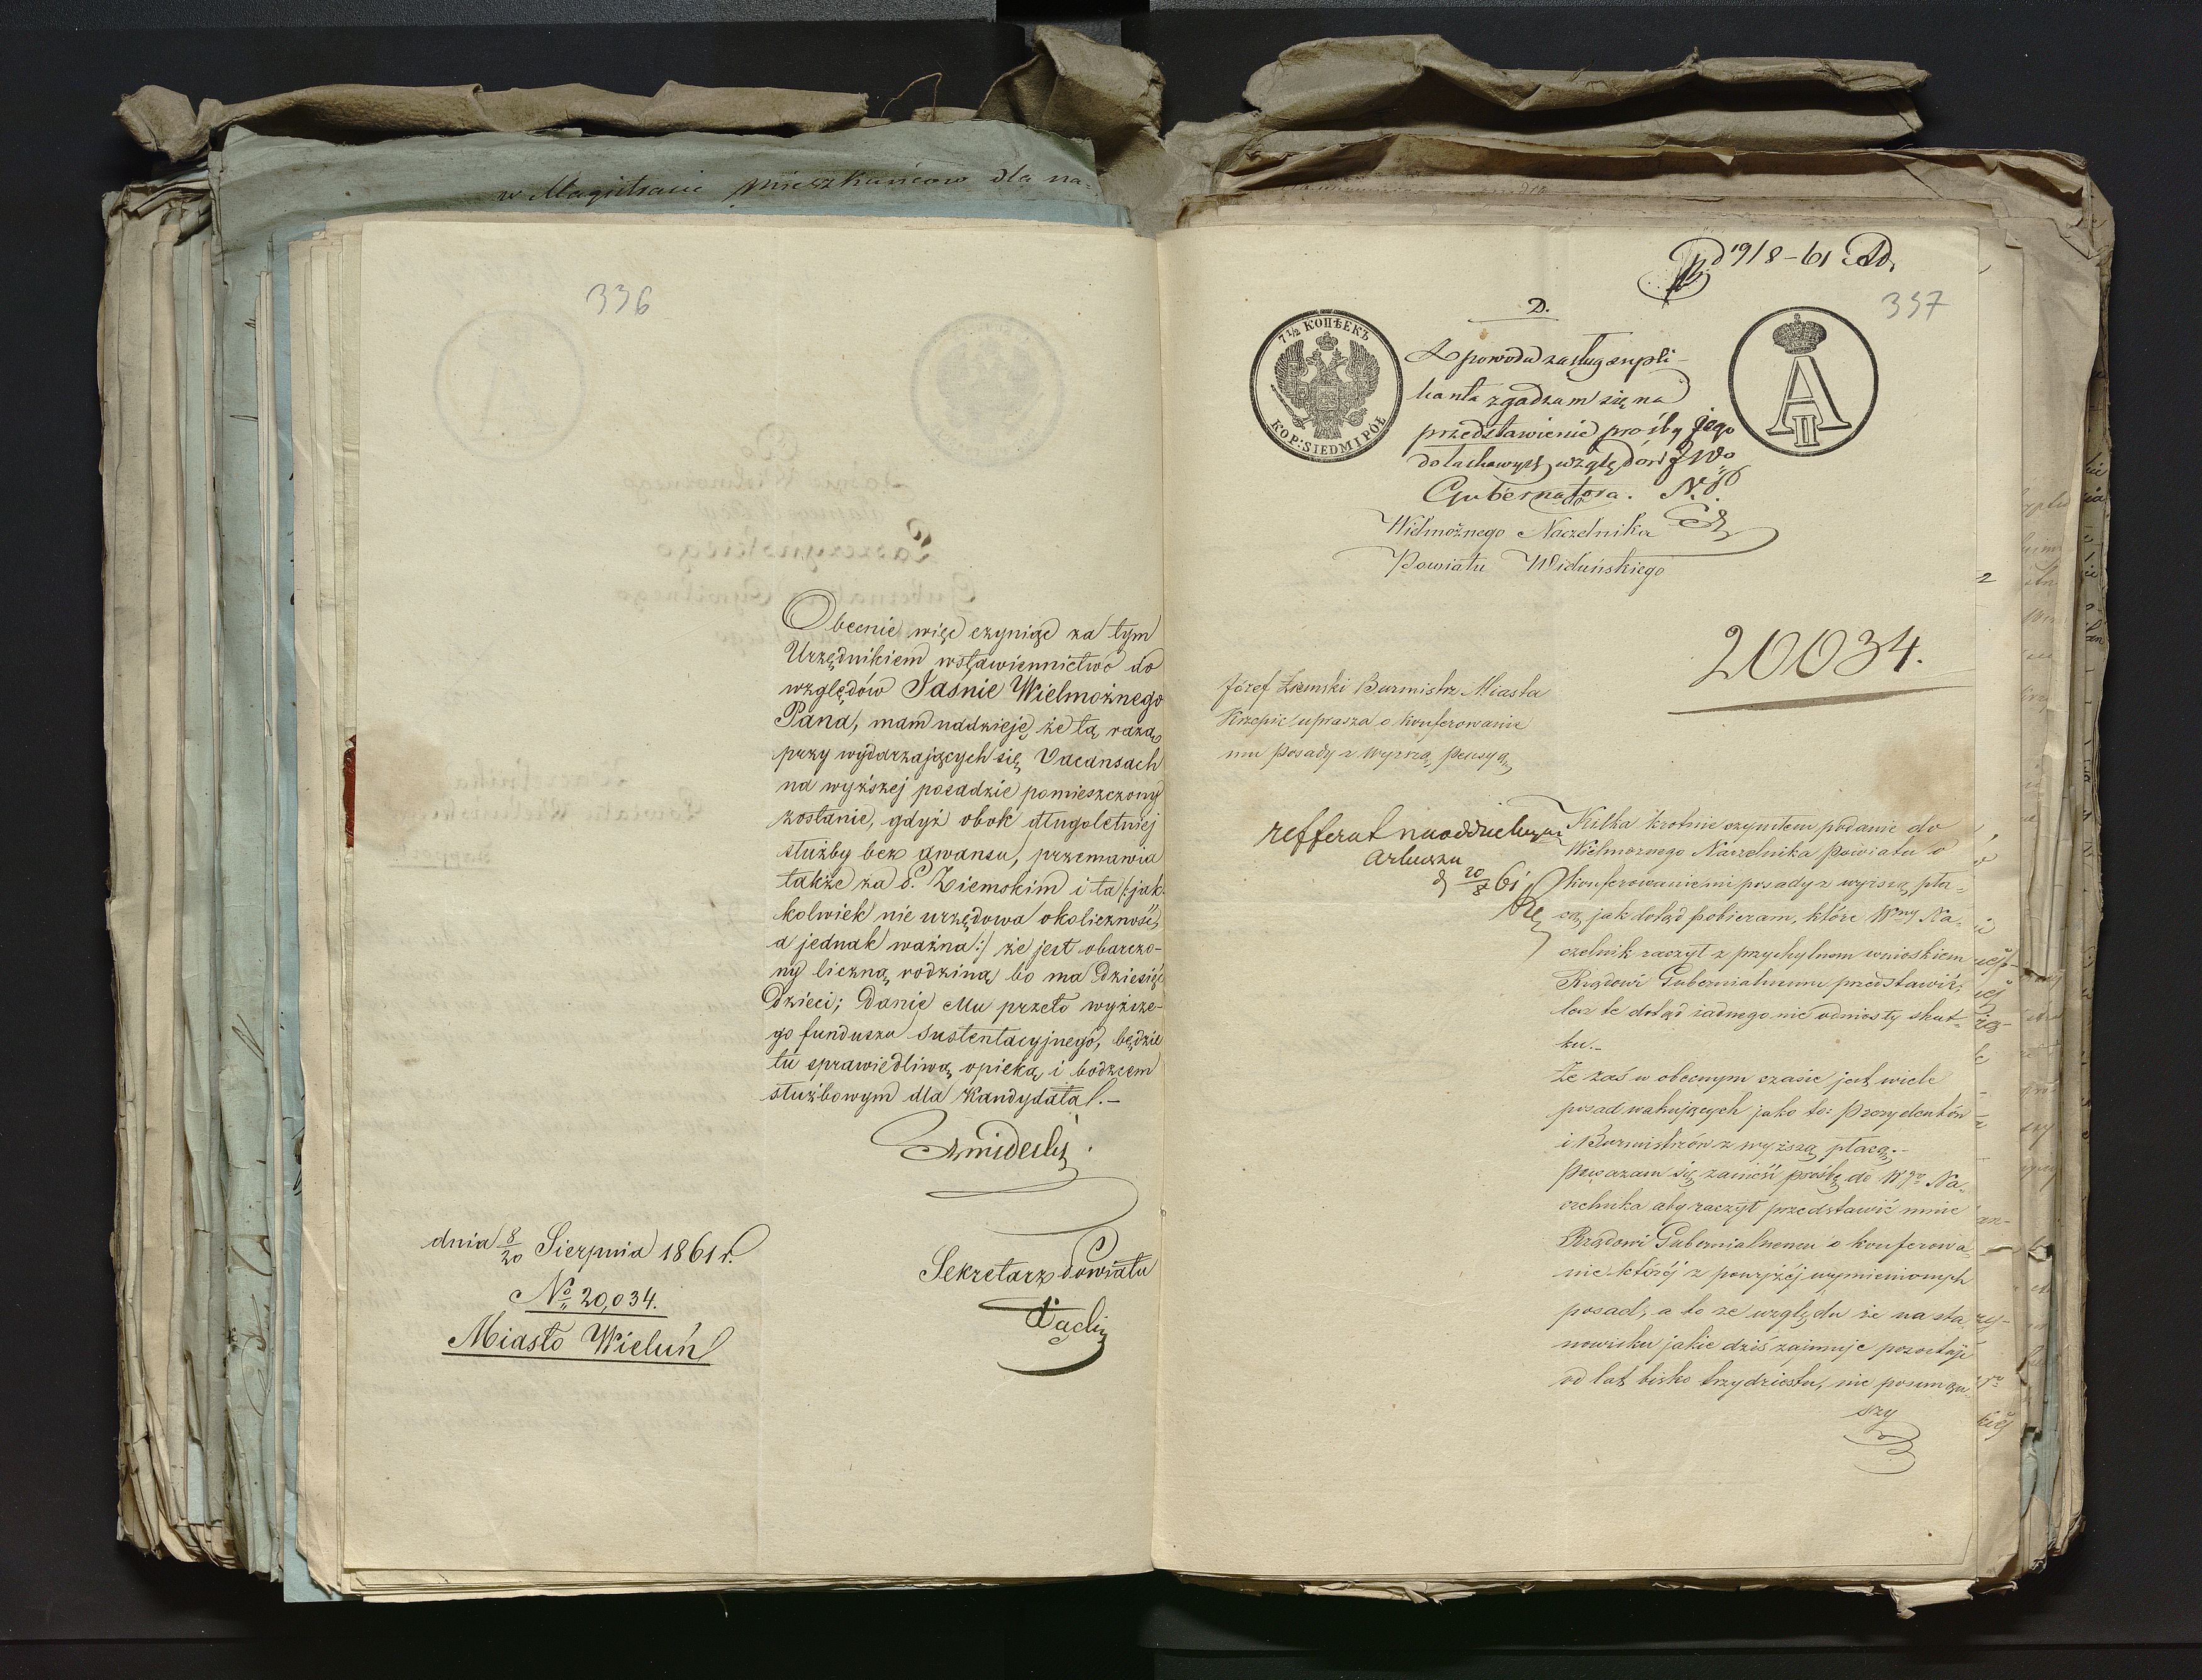 w Magistracie mieszkańców dla na-
336
Obecnie więc czyniąc za tym
Urzędnikiem wstawiennictwo do
względów Jaśnie Wielmożnego
Pana, mam naddzieję że tą razą
przy wydarzających się Vacansach
na wyższej posadzie pomieszczony
zostanie, gdyż obok długoletniej
służby bez awansu, przemawia
także za P. Ziemskim i ta /:jak-
kolwiek nie urzędowa okoliczność,
a jednak ważna:/ że jest obarczo-
ny liczną rodziną bo ma Dziesięć
Dzieci; Danie Mu przeto wyższe-
go funduszu Sustentacyjnego, będzie
tu sprawiedliwą opieką i bodźcem
służbowym dla Kandydata.-
Sekretarz Powiatu
dnia 8/20 Sierpnia 1861 r.
No 20,034.
Miasto Wieluń
d 19/8-61
357
2.
7½ КОПѢЕКЪ
KOP: SIEDM I PÓŁ
A II
Z powodu zasług supli-
kanta zgadzam się na
przedstawienie prośby jego
do łaskawych względów JWo
Gubernatora.
Do
Wielmożnego Naczelnika
Powiatu Wieluńskiego
20034.
Józef Ziemski Burmistrz Miasta
Krzepic uprasza o konferowanie
mu posady z wyższą pensyą
refferat na oddzielnym
arkuszu
d 20/8 61
Kilka krotnie czyniłem podanie do
Wielmożnego Naczelnika Powiatu o
konferowanie mi posady z wyższą pła-
cą, jak dotąd pobieram, które Wny Na-
czelnik raczył z przychylnem wnioskiem
Rządowi Gubernialnemu przedstawić,
lecz te dotąd żadnego nie odniosły skut-
ku.-
Że zaś w obecnym czasie jest wiele
posad wakujących jako to: Prezydentów
i Burmistrzów z wyższą płacą.-
Poważam się zanieść prośbę do Wgo Na-
czelnika aby raczył przedstawić mnie
Rządowi Gubernialnemu o konferowa-
nie którój z powyżéj wymienionych
posad, a to ze względu że na sta-
nowisku jakie dziś zajmuje pozostaję
od lat blisko trzydziestu, nie posunąw-
szy